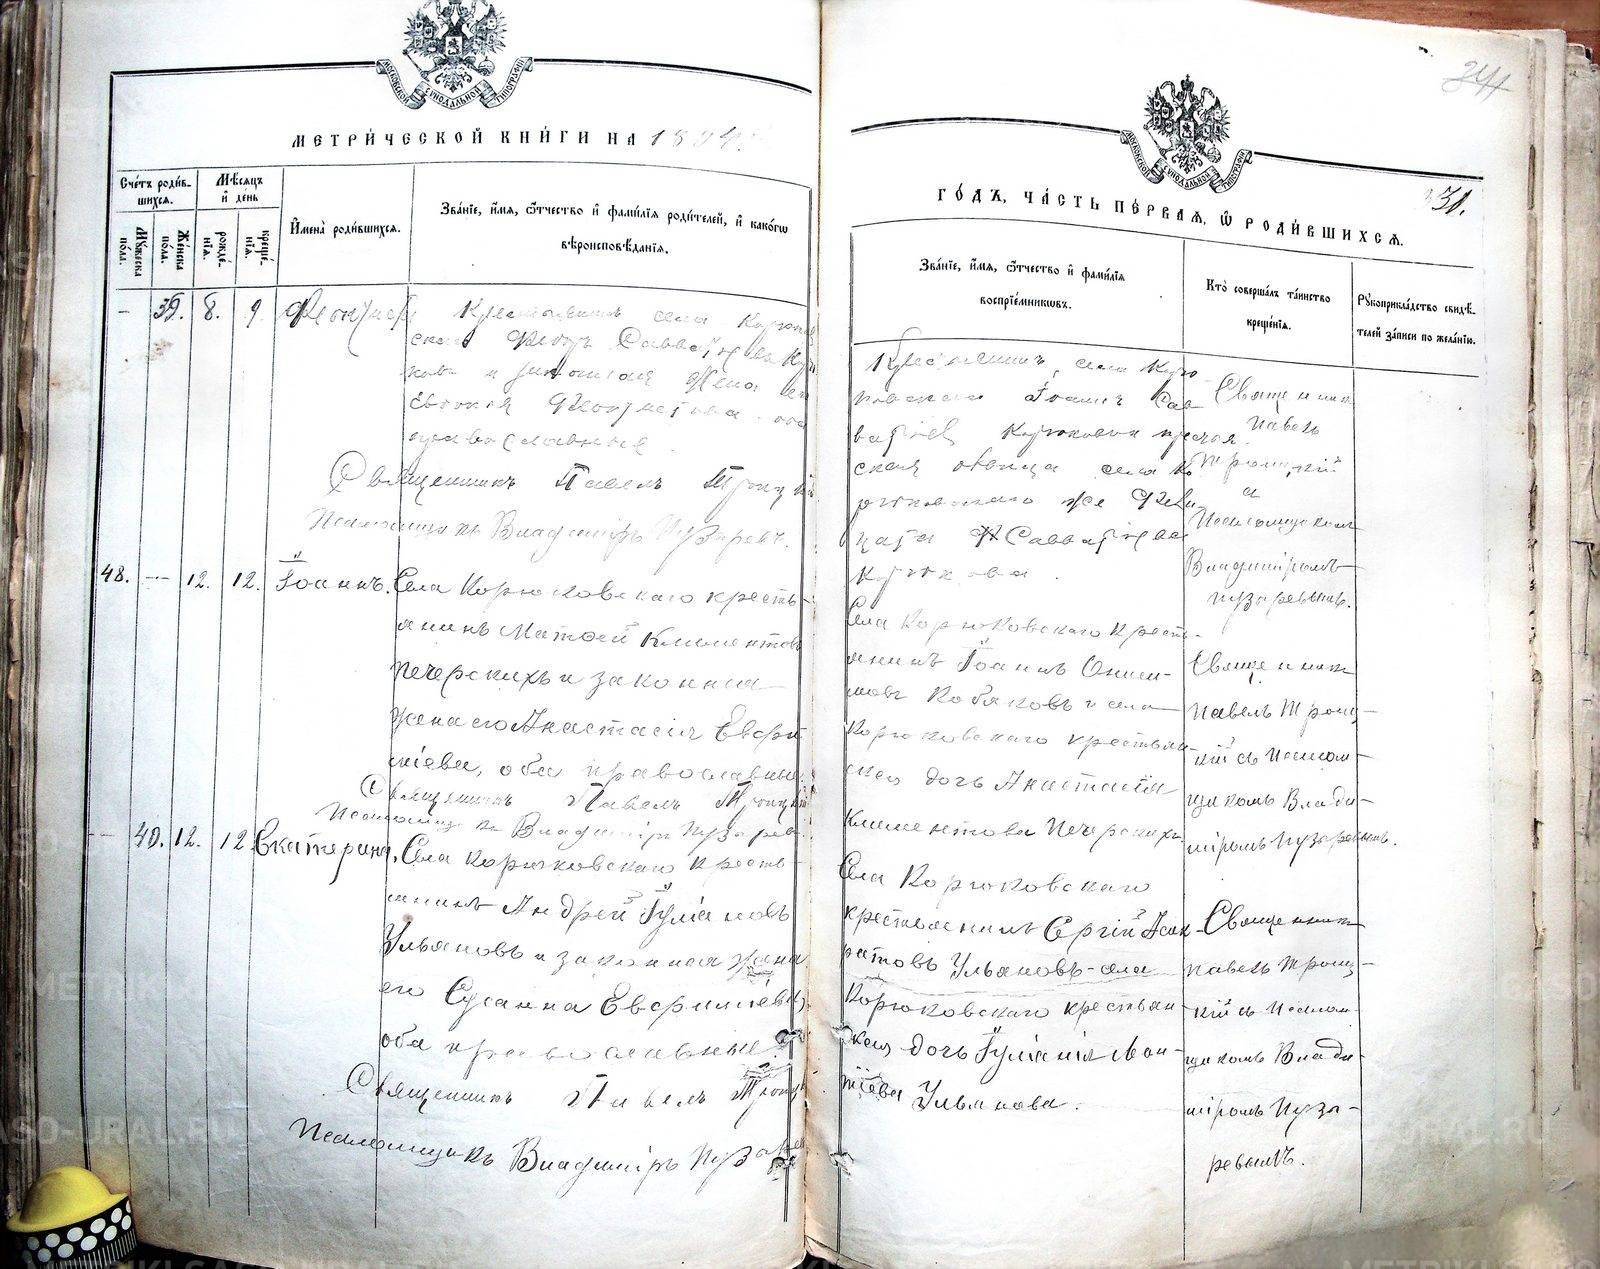 МОСКОВСКОЙ СѴНОДАЛЬНОЙ ТИПОГРАФІИ
МЕТРИ́ЧЕСКОЙ КНИ́ГИ НА 1894
Сче́тъ роди́в-
шихся.
Мѣ́сяцъ
и҆ де́нь
Мꙋ́жеска
по́ла.
Же́нска
по́ла.
рожде́-
нїѧ.
креще́-
нїѧ.
И҆мена̀ роди́вшихсѧ.
Зва́нїе, и҆́мѧ, ѻ҆́тчество и҆ фами́лїѧ роди́телей, и҆ како́гѡ
вѣроисповѣ́данїѧ.
— 39. 8. 9. Феоктиста
Крестьянинъ села Корюков
ско
и законная жена его
Евдокия Феоктистова оба
православные.
Священникъ Павелъ Троицкій
Псаломщикъ Владиміръ Пузаревъ.
48. — 12. 12. Іоаннъ. Села Корюковскаго кресть-
янинъ Матѳей Климентовъ
Печерскихъ и законная
жена его Анастасія Евфи
міева, оба православные.
Священникъ Павелъ Троицкій
Псаломщикъ Владиміръ Пузарев
— 40. 12. 12 Екатерина. Села Корюковскаго кресть-
янинъ Андрей Іуліановъ
Ульяновъ и законная жена
его Сусанна Евфиміева,
оба православные.
Священникъ Павелъ Троиц
Псаломщикъ Владиміръ Пузарев
МОСКОВСКОЙ СѴНОДАЛЬНОЙ ТИПОГРАФІИ
241
31.
ГО́ДЪ, ЧА́СТЬ ПЕ́РВАѦ, Ѡ҆ РОДИ́ВШИХСѦ.
Зва́нїе, и҆́мѧ, ѻ҆́тчество и҆ фами́лїѧ
воспрїе́мникѡвъ.
Кто̀ соверша́лъ та́инство
креще́нїѧ.
Рꙋкоприкла́дство свидѣ́-
телей за́писи по жела́нїю.
Крестьянинъ села Корю
ковскаго Іоаннъ Сав
ватіев Корюковъ и
ская девица села Ко
рюковскаго же Фели
цата Савватіева
Корюкова.
Священник
Павелъ
Троицкій
и
Псаломщикомъ
Владиміромъ
Пузаревымъ.
Села Корюковскаго кресть-
янинъ ІоаннъОниси-
мовъ Кобяковъ и села
Корюковскаго крестьян-
ская дочь Анастасія
Климентова Печерскихъ.
Священник
Павелъ Троиц-
кій съ Псалом-
щикомъ Влади-
міромъ Пузаревымъ.
Села Корюковскаго
крестьянинъ Сергій
ратовъ Ульяновъ села
Корюковскаго крестьян-
ская дочь Іуліанія Леон-
тіева Ульянова.
Священник
Павелъ Троиц-
кій съ Псалом-
щикомъ Влади-
міромъ Пуза-
ревымъ.